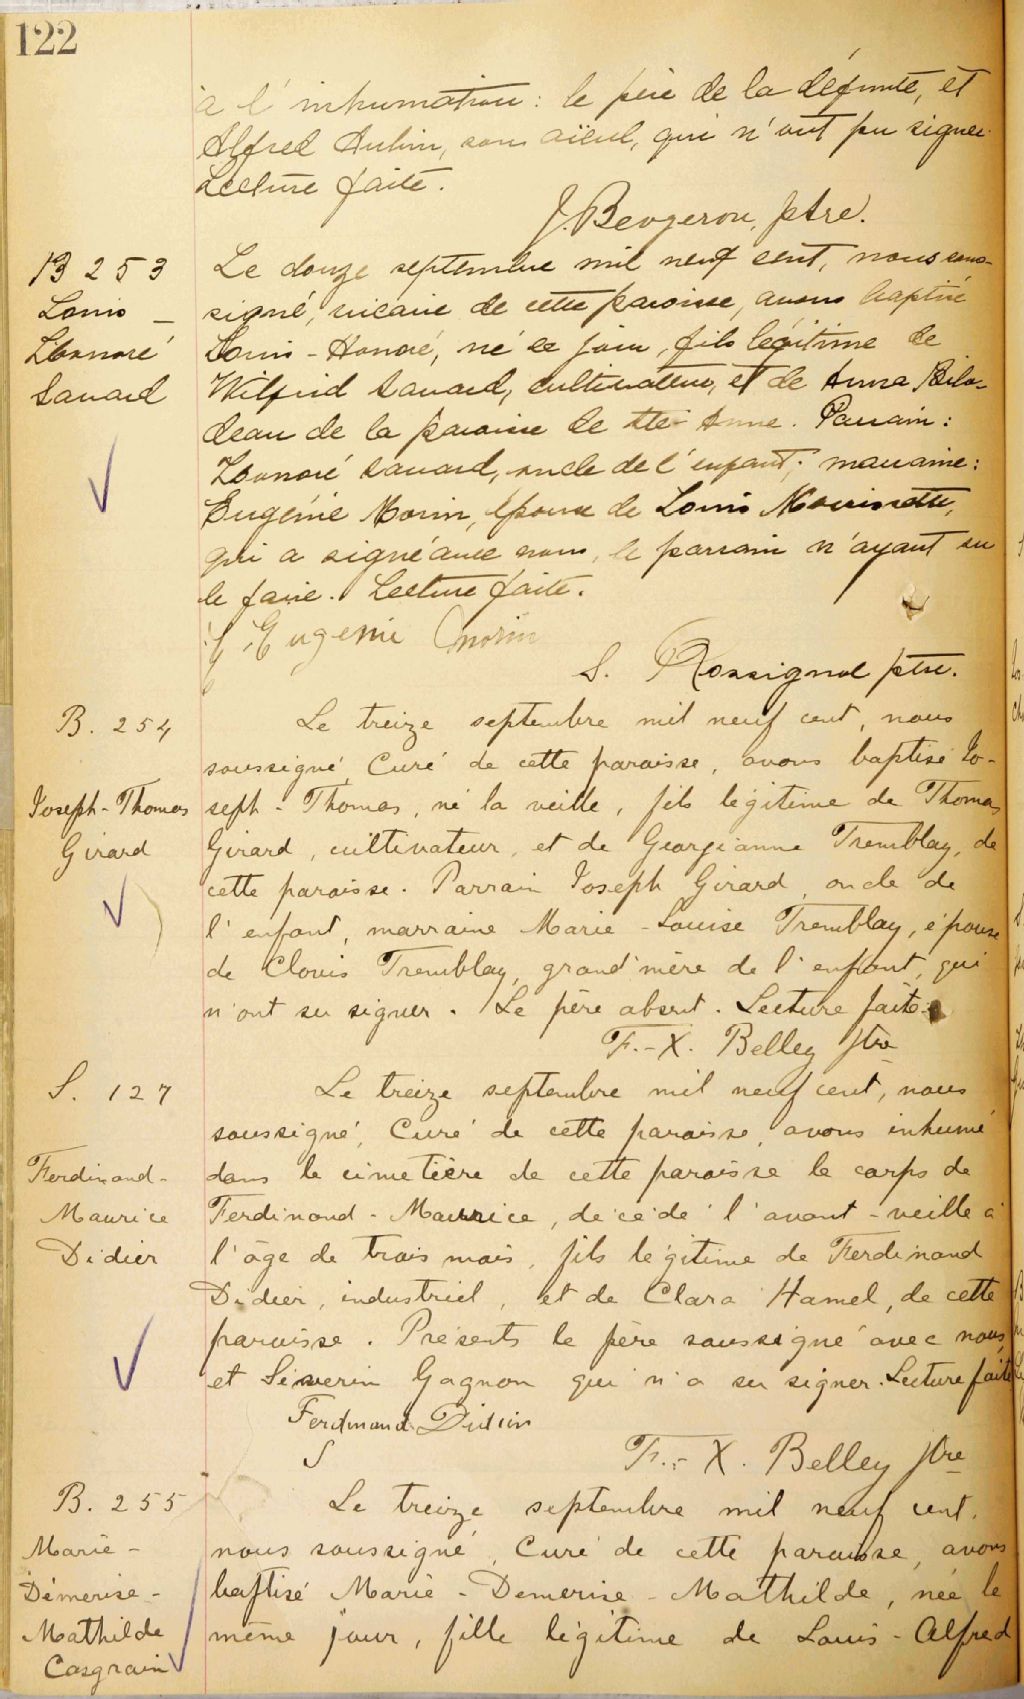 122
à l'inhumation : le père de la défunte, et
Alfred Aubin, son aïeul, qui n'ont pu signer.
Lecture faite.
J. Bergeron, ptre.
B 253
Louis -
Honoré
Savard
Le douze septembre mil neuf cent, nous sous-
signé, vicaire de cette paroisse, avons baptisé
Louis - Honoré, né ce jour, fils légitime de
Wilfrid Savard, cultivateur, et de Anna Bilo-
deau de la paroisse de Ste Anne. Parrain :
Honoré Savard, oncle de l'enfant; marraine :
Eugénie Morin, épouse de Louis Morissette,
qui a signé avec nous, le parrain n'ayant su
le faire. Lecture faite.
Eugenie Morin
S. Rossignol ptre.
B. 254
Joseph - Thomas
Girard
Le treize septembre mil neuf cent, nous
soussigné, Curé de cette paroisse, avons baptisé Jo-
seph - Thomas, né la veille, fils légitime de Thomas
Girard, cultivateur, et de Georgianna Tremblay, de
cette paroisse. Parrain Joseph Girard, oncle de
l'enfant, marraine Marie - Louise Tremblay, épouse
de Clovis Tremblay, grand'mère de l'enfant, qui
n'ont su signer. Le père absent. Lecture faite.
F.-X. Belley ptre
S. 127
Ferdinand -
Maurice
Didier
Le treize septembre mil neuf cent, nous
soussigné, Curé de cette paroisse, avons inhumé
dans le cimetière de cette paroisse le corps de
Ferdinand - Maurice, décédé l'avant - veille à
l'âge de trois mois, fils légitime de Ferdinand
Didier, industriel, et de Clara Hamel, de cette
paroisse. Présents le père soussigné avec nous,
et Séverin Gagnon qui n'a su signer. Lecture faite
Ferdinand Didier
F.-X. Belley ptre
B. 255
Marie -
Démerise -
Mathilde
Casgrain
Le treize septembre mil neuf cent,
nous soussigné, Curé de cette paroisse, avons
baptisé Marie - Demerise - Mathilde, née le
même jour, fille légitime de Louis - Alfred